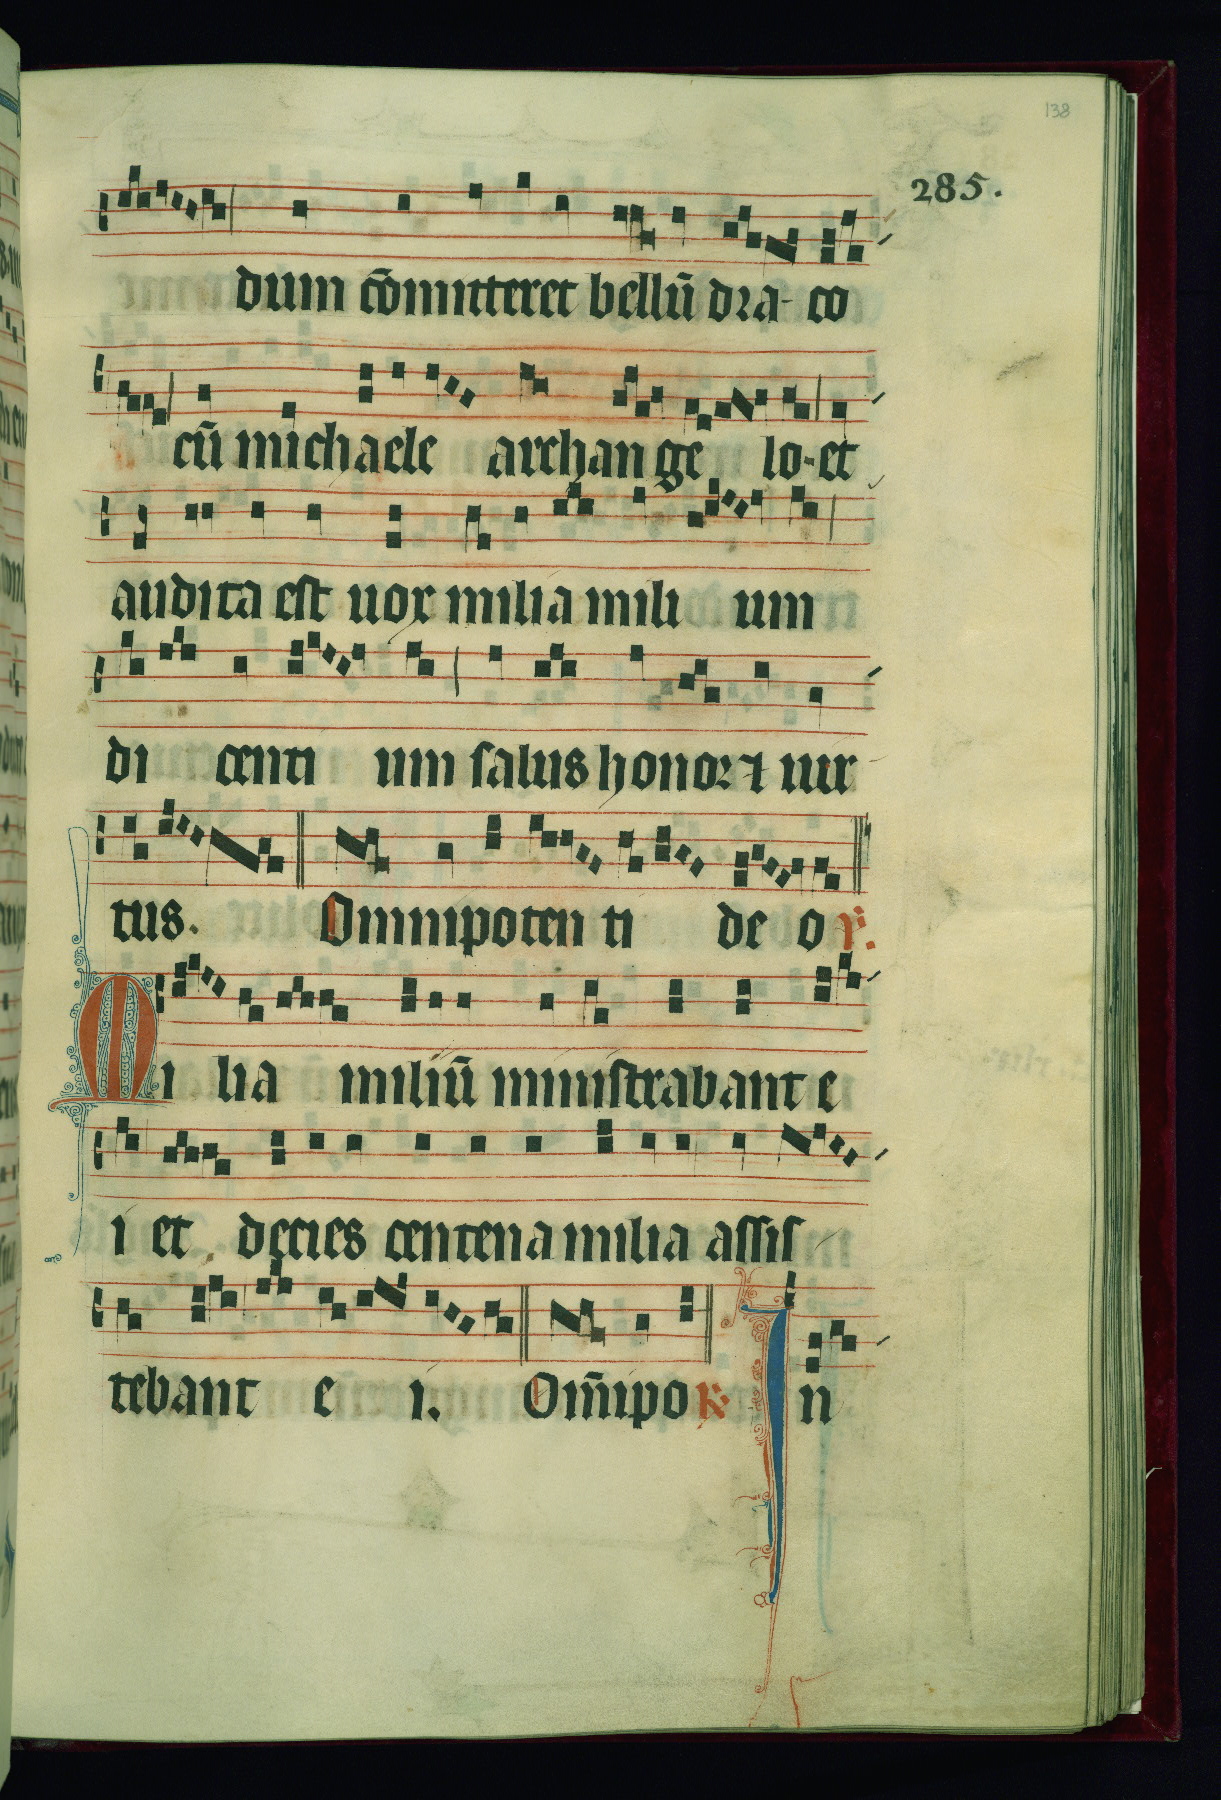 138
285.
dum cō mitteret bellū dra- co
cū michaele archan ge lo. et
audita est uox milia mili um
di centi um salus honor ⁊ uir
tus. Omnipoten ti de o ℣.
Mi lia miliū ministrabant e
i et decies centena milia assis
tebant e i. Om̄ipo ℟. In